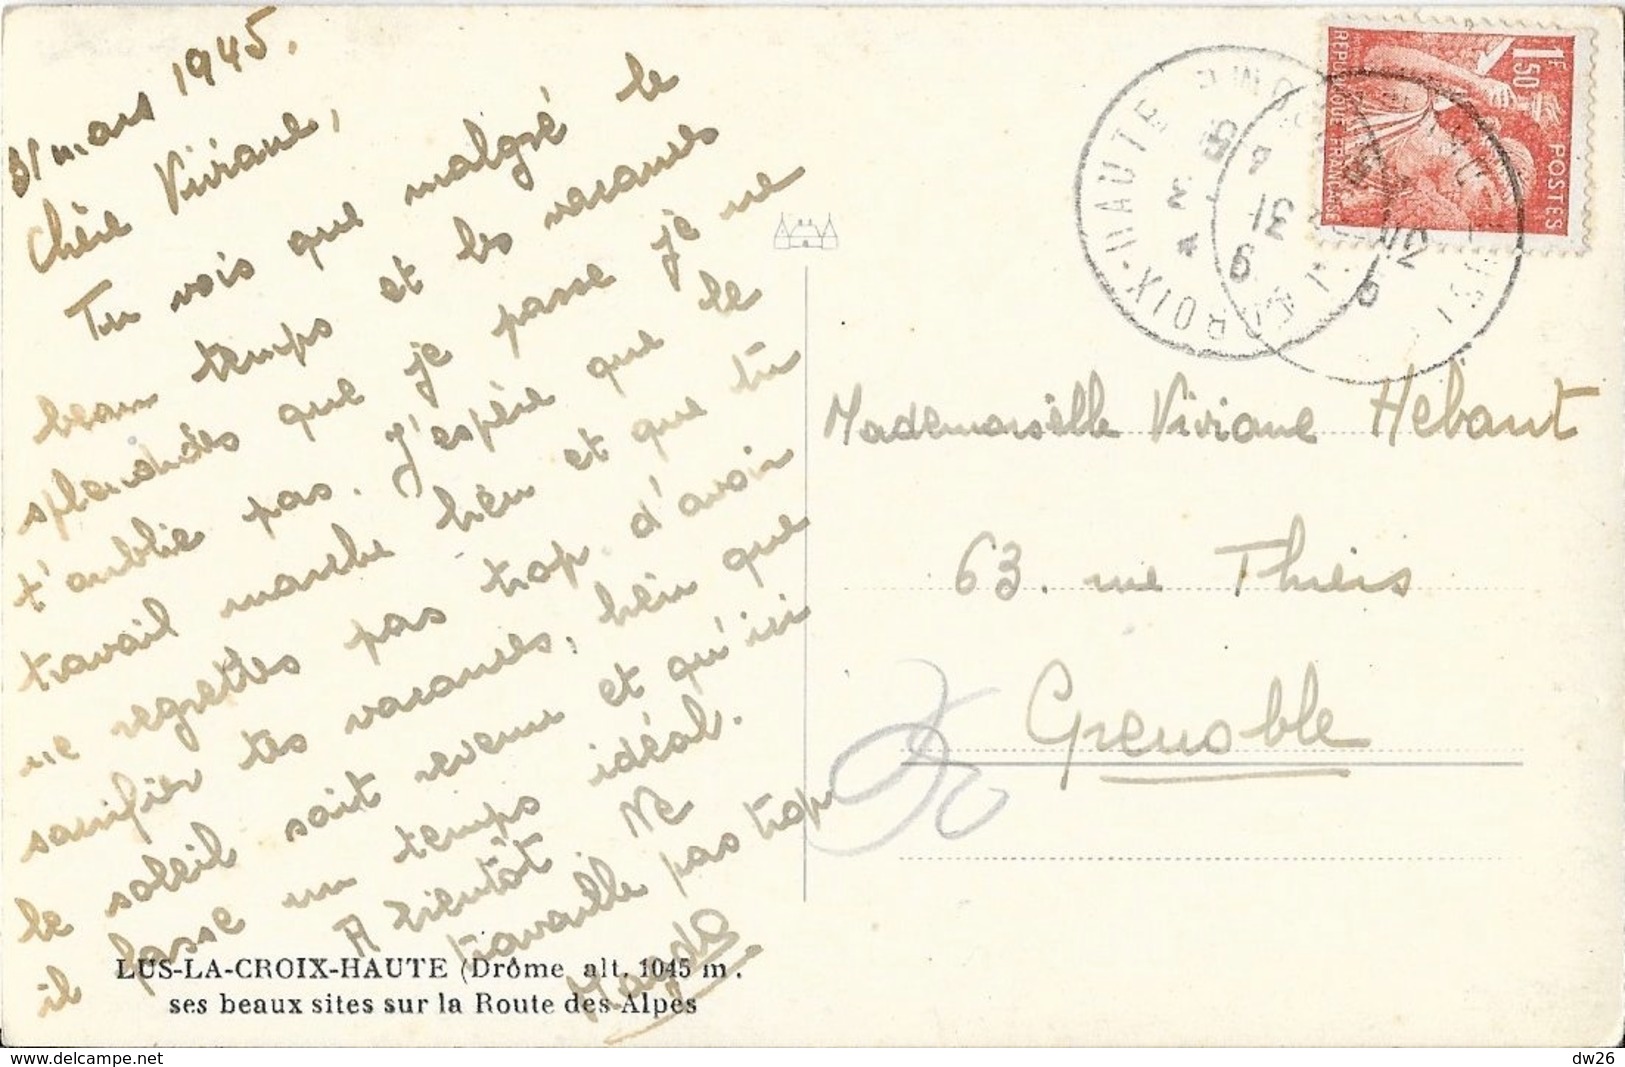 31 mars 1945.
Chère Viviane,
Tu vois que malgré le
beau temps et les vacances
splendides que je passe je ne
t'oublie pas. J'espère que le
travail marche bien et que tu
ne regrettes pas trop d'avoir
sacrifier tes vacances, bien que
le soleil soit revenu et qu'ici
il fasse un temps idéal.
A bientôt. Ne
travaille pas trop
Magda
LUS-LA-CROIX-HAUTE (Drôme alt. 1045 m.
ses beaux sites sur la Route des Alpes
1F50
POSTES
REPUBLIQUE FRANÇAISE
CROIX-HAUTE
31
Mademoiselle Viviane Hébant
63. rue Thiers
Grenoble
www.delcampe.net
dw26